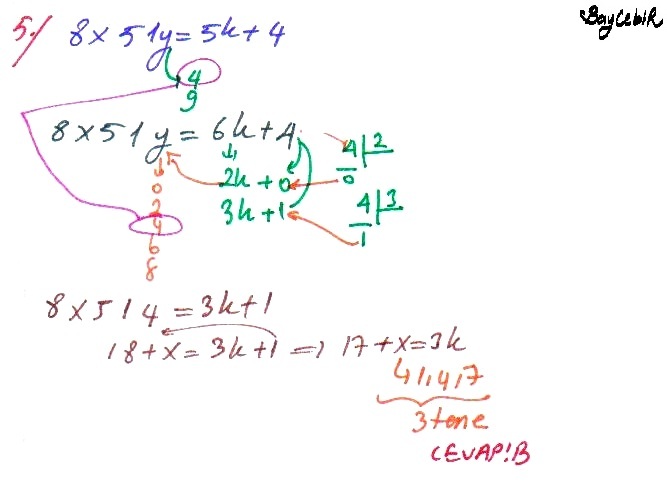 BayCebiR
5./ 8x51y = 5k+4
4
9
8x51y = 6k+4
0
2
4
6
8
2k+0
3k+1
4 | 2
0
4 | 3
1
8x514 = 3k+1
18+x = 3k+1 => 17+x = 3k
1,4,7
3 tane
CEVAP:B